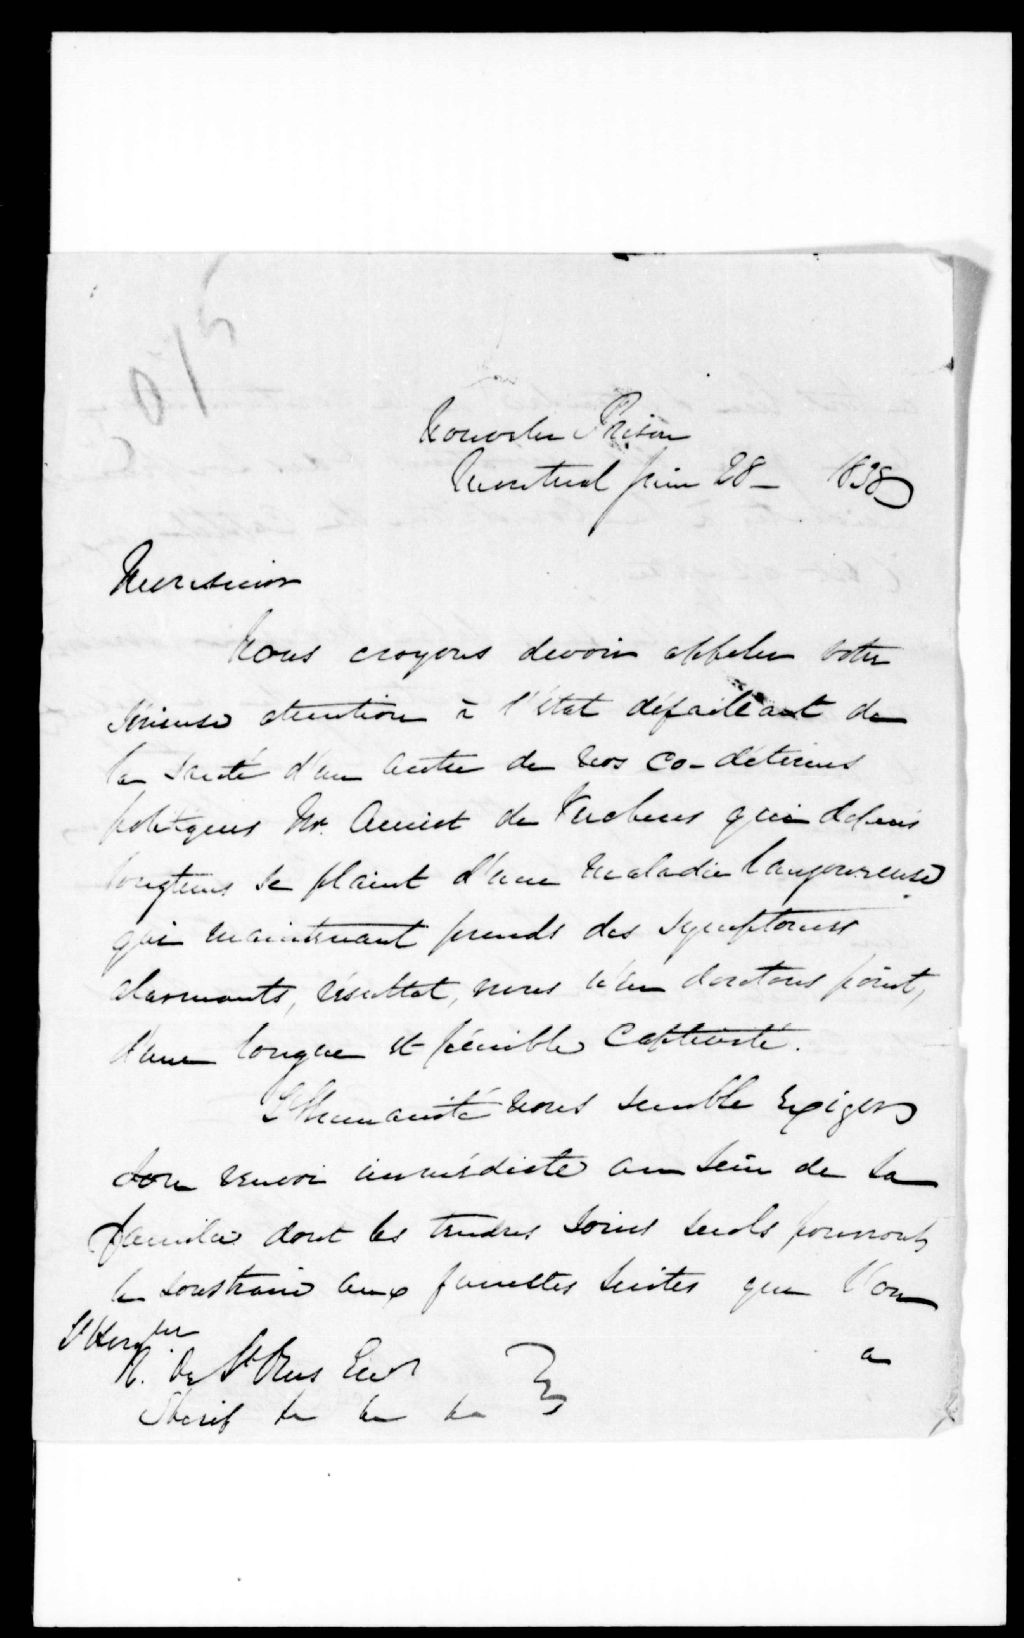 Nouvelle Prison
Montreal Juin 28 — 1838
Monsieur
Nous croyons devoir appeler votre
sérieuse attention à l'état défaillant de
la santé d'un autre de nos co-détenus
politiques Mr. Amiot de Verchères qui depuis
longtems se plaint d'une maladie langoureuse
qui maintenant prends des symptomes
alarmants, résultat, nous n'en doutons point,
d'une longue et pénible captivité.
L'Humanité nous semble exiger
son renvoi immédiate au sein de sa
famille dont les tendres soins seuls pourront
le soustraire aux funestes suites que l'on
a
L'Honble
R. De St Ours Ecr
Sherif &c &c &c